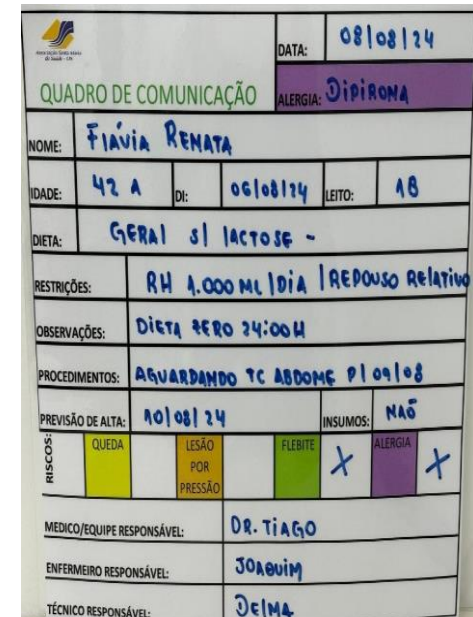 DATA: 08/08/24
QUADRO DE COMUNICAÇÃO
ALERGIA: DIPIRONA
NOME: FLÁVIA RENATA
IDADE: 42 A DI: 06/08/24 LEITO: 18
DIETA: GERAL S/ LACTOSE -
RESTRIÇÕES: RH 1.000 ML/DIA | REPOUSO RELATIVO
OBSERVAÇÕES: DIETA ZERO 24:00H
PROCEDIMENTOS: AGUARDANDO TC ABDOME P/ 09/08
PREVISÃO DE ALTA: 10/08/24 INSUMOS: NAÕ
RISCOS: QUEDA LESÃO POR PRESSÃO FLEBITE X ALERGIA X
MEDICO/EQUIPE RESPONSÁVEL: DR. TIAGO
ENFERMEIRO RESPONSÁVEL: JOAQUIM
TÉCNICO RESPONSÁVEL: DELMA